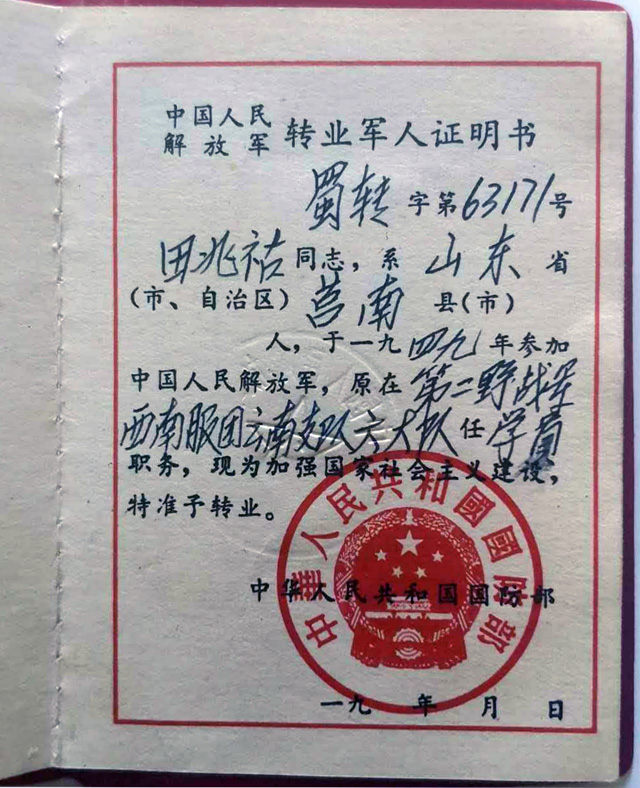 中国人民
解放军 转业军人证明书
蜀转字第63171号
田兆祜同志，系山东省
（市、自治区）莒南县（市）
人，于一九四九年参加
中国人民解放军，原在第二野战军
西南服团云南支队六大队任学员
职务，现为加强国家社会主义建设，
特准予转业。
中华人民共和国国防部
中華人民共和國國防部
一九 年 月 日